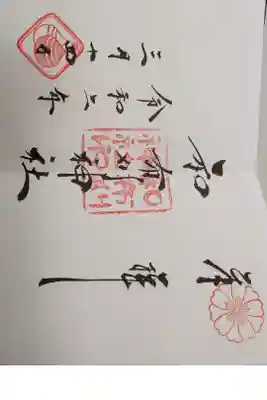 奉拝
和布刈神社
令和二年
月十四日